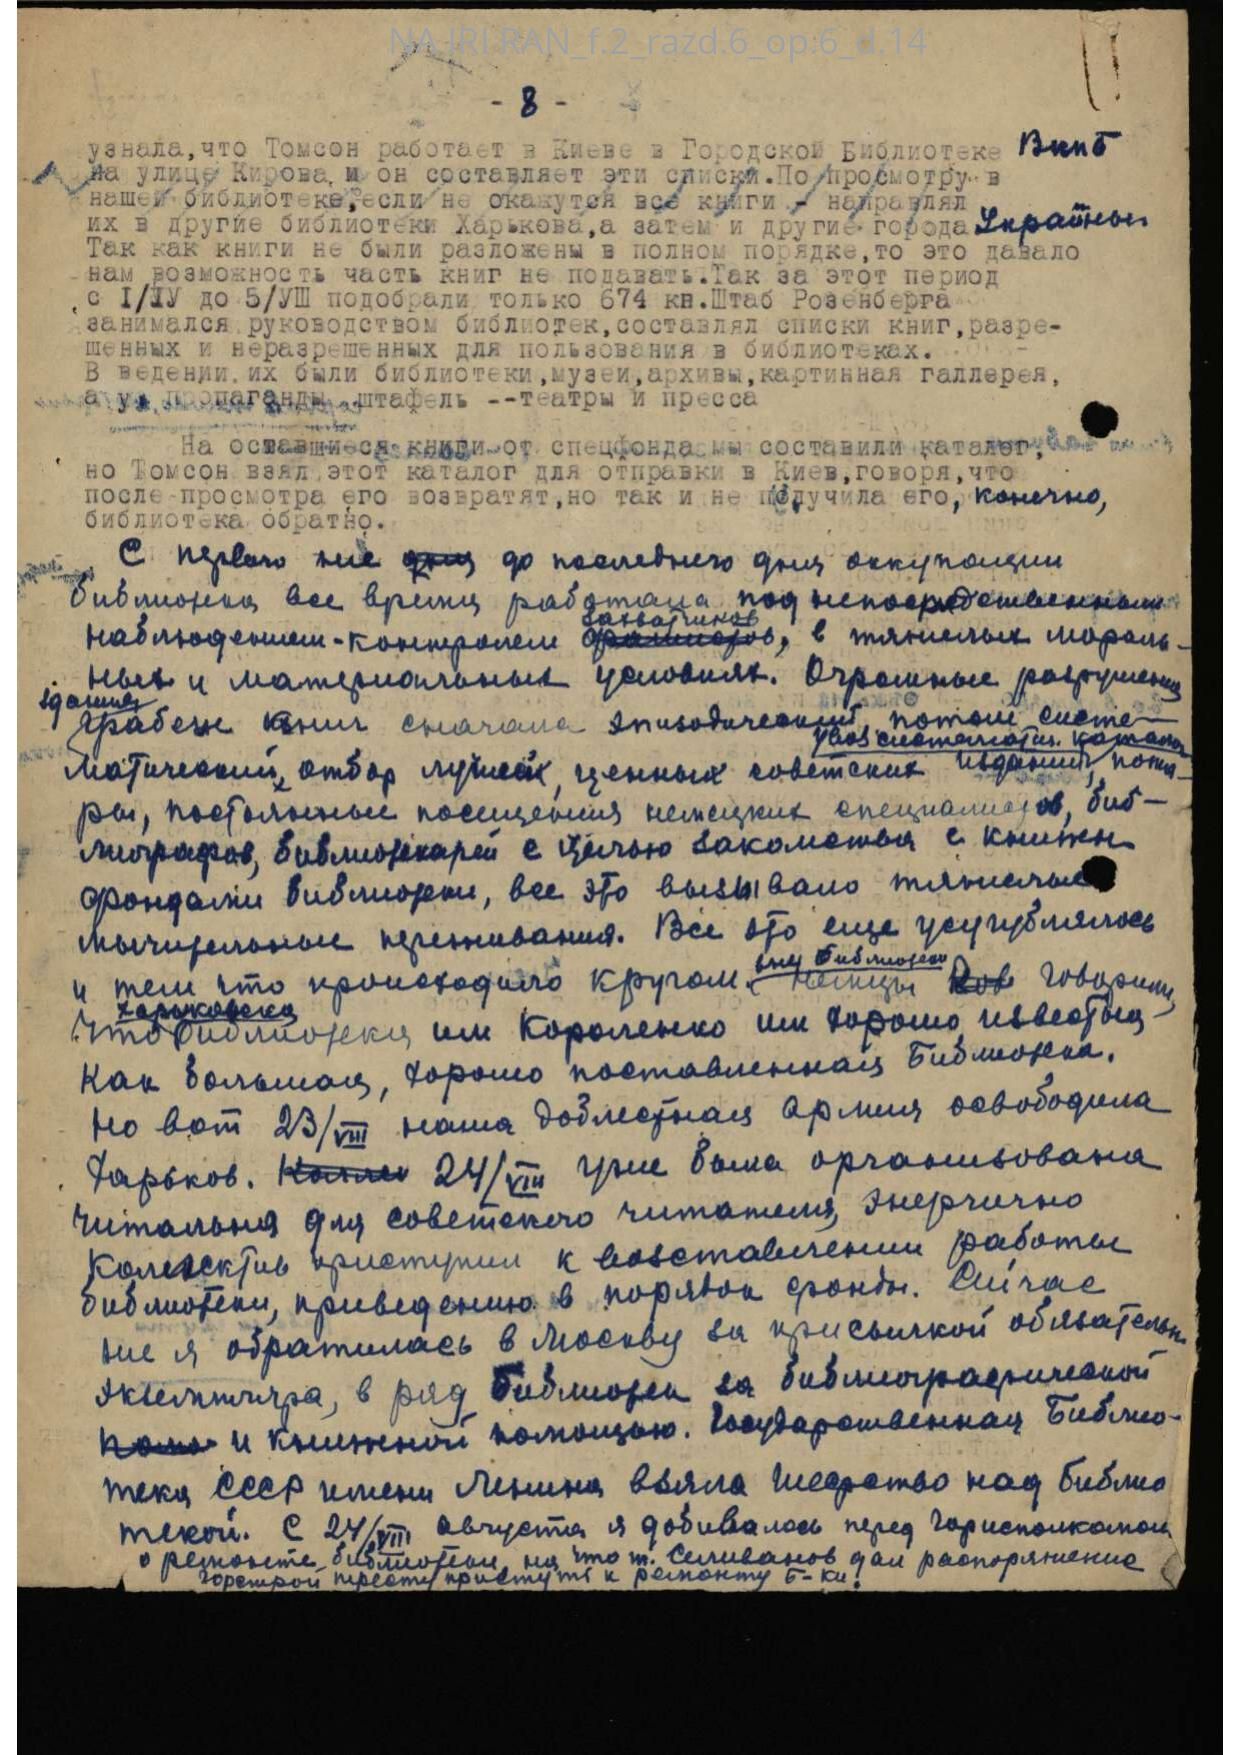 NA IRI RAN_f.2_razd.6_op.6_d.14
- 8 -
узнала, что Томсон работает в Киеве в Городской Библиотеке ВКПб
на улице Кирова и он составляет эти списки. По просмотру в
нашей библиотеке, если не окажутся все книги - направлял
их в другие библиотеки Харькова, а затем и другие города Украины.
Так как книги не были разложены в полном порядке, то это давало
нам возможность часть книг не подавать. Так за этот период
с I/IУ до 5/УШ подобрали только 674 кн. Штаб Розенберга
занимался руководством библиотек, составлял списки книг, разре-
шенных и неразрешенных для пользования в библиотеках.
В ведении их были библиотеки, музеи, архивы, картинная галлерея,
а у пропаганды штафель -- театры и пресса
На оставшиеся книги от спецфонда мы составили каталог,
но Томсон взял этот каталог для отправки в Киев, говоря, что
после просмотра его возвратят, но так и не получила его, конечно,
библиотека обратно.
С первого же дня до последнего дня оккупации
библиотека все время работала под непосредственным
захватчиков
наблюдением-контролем фашистов, в тяжелых мораль-
ных и материальных условиях. Огромные разрушения
здания
грабеж книг сначала эпизодический, потом систе-
увоз систематич. каталога
матический, отбор лучших, ценных советских изданий, пожа-
ры, постоянные посещения немецких специалистов, биб-
лиографов, библиотекарей с целью закомства с книжн.
фондами библиотеки, все это вызывало тяжелые
мычительные переживания. Все это еще усугублялось
вне библиотеки
и тем что происходило кругом. Немцы говорили,
харьковская
что библиотека им Короленко им хорошо известна
как большая, хорошо поставленная Библиотека.
Но вот 23/VIII наша доблестная армия освободила
Харьков. 24/VIII уже была организована
читальня для советского читателя, энергично
Коллектив приступил к восставлении работы
библиотеки, приведению в порядок фонды. Сейчас
же я обратилась в Москву за присылкой обязательн.
экземпляра, в ряд Библиотек за библиографической
и книжной помощью. Государственная Библио-
тека СССР имени Ленина взяла шефство над библио
текой. С 24/VIII августа я добивалась перед Горисполкомом
о ремонте библиотеки, на что т. Селиванов дал распоряжение
горстрой тресту приступ к ремонту Б-ки.